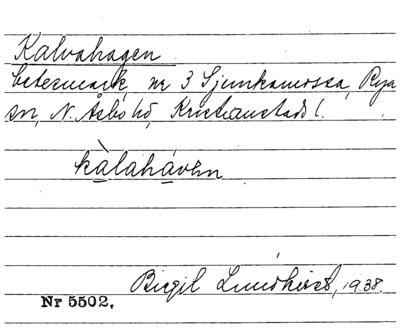 Kalvahagen
betesmark, nr 3 Sjunkamossa, Rya
sn, N. Åsbo hd, Kristianstads l.
kàlahávẹn
Birgil Lundkvist, 1938.
Nr 5502.